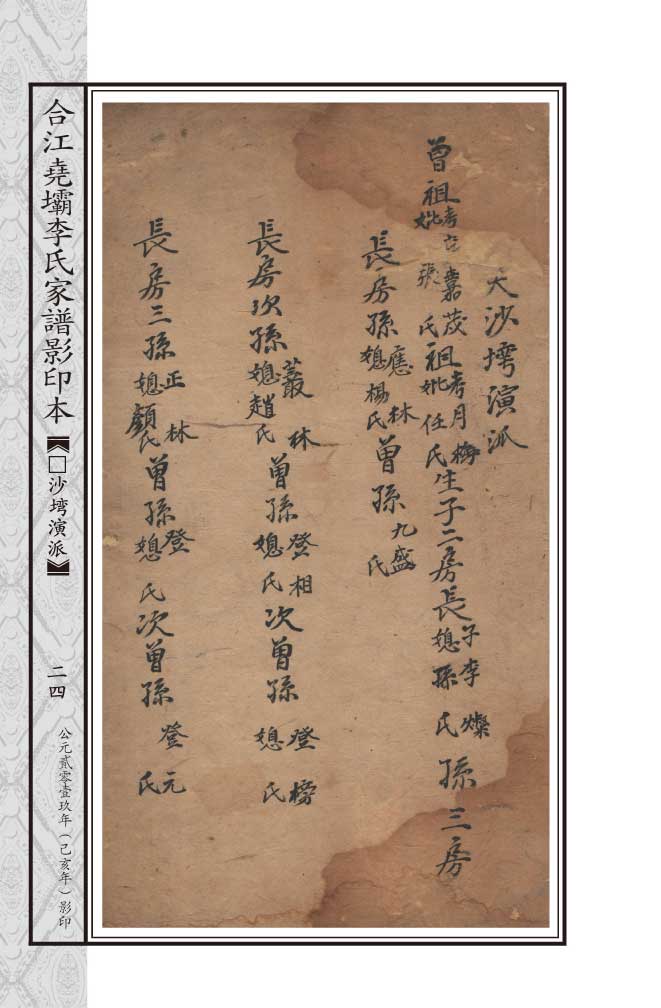 沙塆演派
曾祖考 嘉茂祖考月梅生子二房長子李燦孫三房
妣張氏 妣任氏 媳孫氏
長房孫應林曾孫九盛
媳楊氏 氏
長房次孫叢林曾孫登相次曾孫登榜
媳趙氏 媳氏 媳氏
長房三孫正林曾孫登次曾孫登元
媳顏氏 媳氏 氏
合江堯壩李氏家譜影印本
【□沙塆演派】
二四
公元貳零壹玖年（己亥年）影印